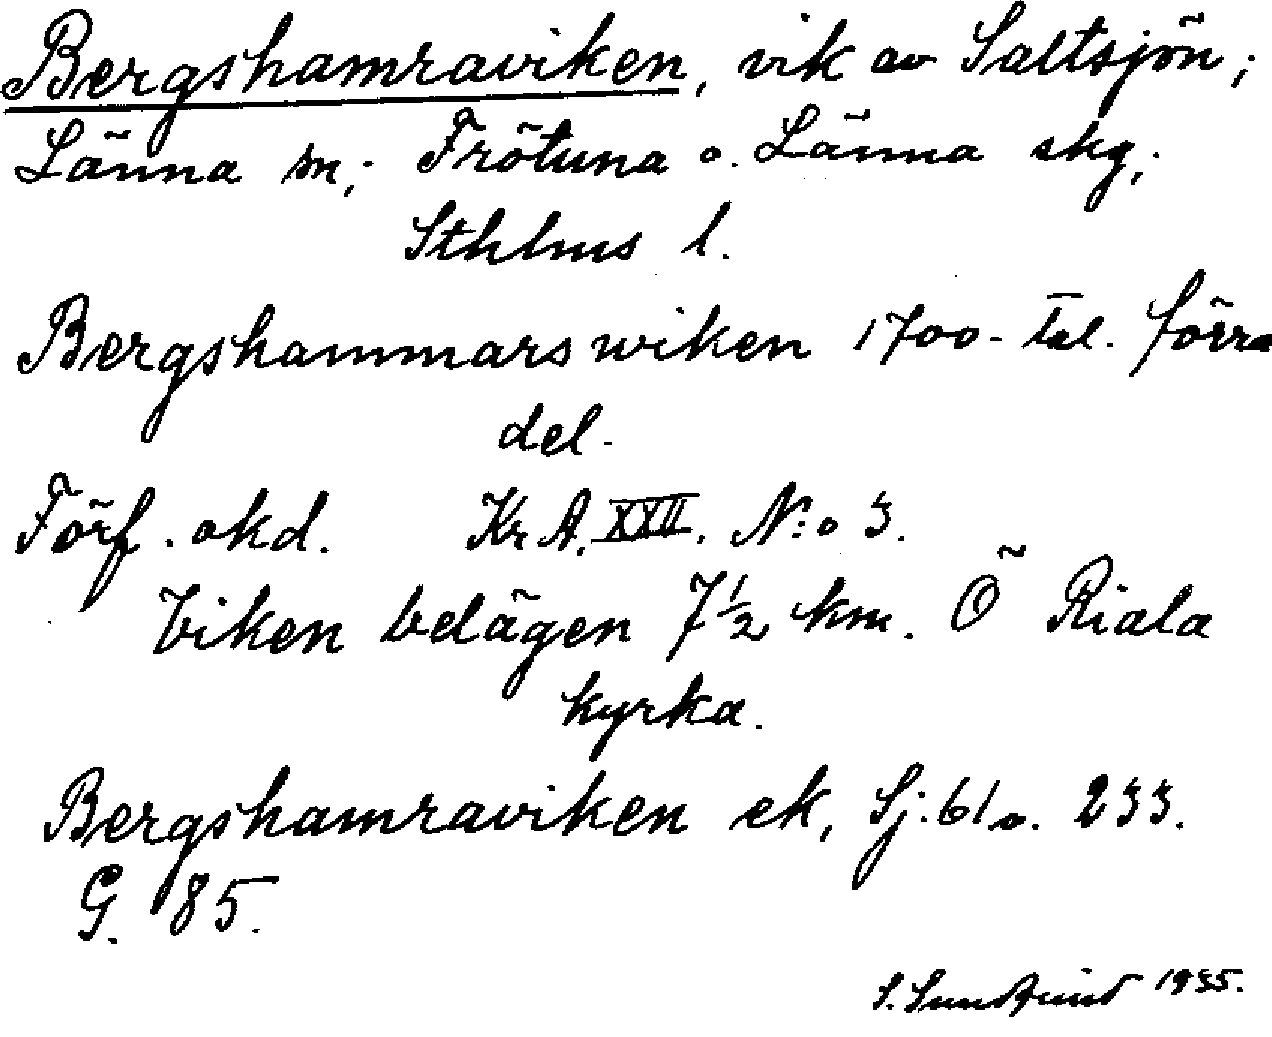 Bergshamraviken, vik av Saltsjön;
Länna sn; Frötuna o. Länna skg;
Sthlms l.
Bergshammarswiken 1700-tal. förra
del.
Förf. okd. Kr A. XXII. N:o 3.
Viken belägen 7½ km. Ö Riala
kyrka.
Bergshamraviken ek, Sj: 61 o. 233.
G. 85.
S. 1935.